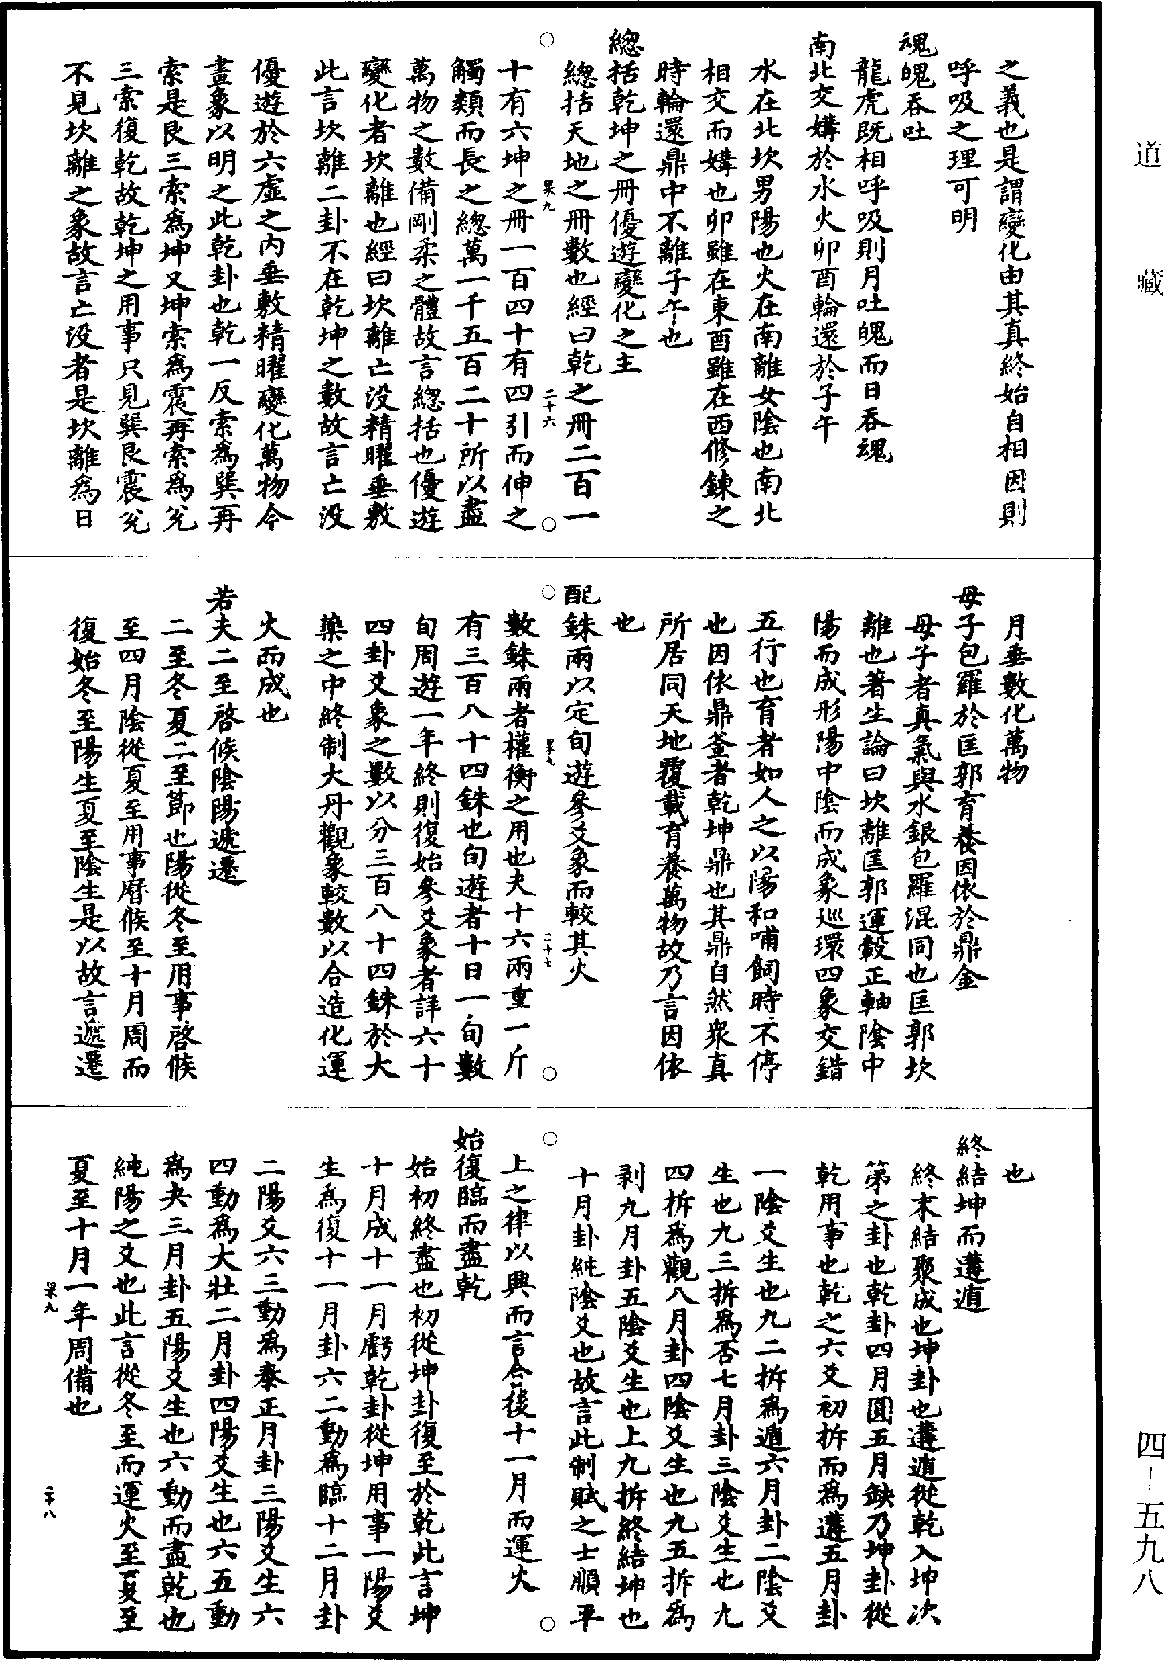 道藏
之義也是謂變化由其真終始自相因則
呼吸之理可明
魂魄吞吐
龍虎既相呼吸則月吐魄而日吞魂
南北交媾於水火卯酉輪還於子午
水在北坎男陽也火在南離女陰也南北
相交而媾也卯雖在東酉雖在西修鍊之
時輪還鼎中不離子午也
總括乾坤之冊優遊變化之主
總括天地之冊數也經曰乾之冊二百一
果九
二十六
十有六坤之冊一百四十有四引而伸之
觸類而長之總萬一千五百二十所以盡
萬物之數備剛柔之體故言總括也優遊
變化者坎離也經曰坎離亡没精曜垂敷
此言坎離二卦不在乾坤之數故言亡没
優遊於六虛之内垂敷精曜變化萬物今
畫象以明之此乾卦也乾一反索爲巽再
索是艮三索爲坤又坤索爲震再索爲兊
三索復乾故乾坤之用事只見巽艮震兊
不見坎離之象故言亡没者是坎離爲日
月垂數化萬物
母子包羅於匡郭育養因依於鼎金
母子者真氣與水銀包羅混同也匡郭坎
離也著生論曰坎離匡郭運轂正軸陰中
陽而成形陽中陰而成象巡環四象交錯
五行也育者如人之以陽和哺飼時不停
也因依鼎釜者乾坤鼎也其鼎自然衆真
所居同天地覆載育養萬物故乃言因依
也
配銖兩以定旬遊參爻象而較其火
果九
二十七
數銖兩者權衡之用也夫十六兩重一斤
有三百八十四銖也旬遊者十日一旬數
旬周遊一年終則復始參爻象者詳六十
四卦爻象之數以分三百八十四銖於大
藥之中終制大丹觀象較數以合造化運
火而成也
若夫二至啓候陰陽遞遷
二至冬夏二至節也陽從冬至用事啓候
至四月陰從夏至用事曆候至十月周而
復始冬至陽生夏至陰生是以故言遞遷
也
終結坤而遘遁
終末結聚成也坤卦也遘遁從乾入坤次
第之卦也乾卦四月圓五月缺乃坤卦從
乾用事也乾之六爻初拆而爲遘五月卦
一陰爻生也九二拆爲遁六月卦二陰爻
生也九三拆爲否七月卦三陰爻生也九
四拆爲觀八月卦四陰爻生也九五拆爲
剥九月卦五陰爻生也上九拆終結坤也
十月卦純陰爻也故言此制賦之士順平
上之律以興而言合後十一月而運火
始復臨而盡乾
始初終盡也初從坤卦復至於乾此言坤
十月成十一月虧乾卦從坤用事一陽爻
生爲復十一月卦六二動爲臨十二月卦
二陽爻六三動爲泰正月卦三陽爻生六
四動爲大壯二月卦四陽爻生也六五動
爲夬三月卦五陽爻生也六動而盡乾也
純陽之爻也此言從冬至而運火至夏至
夏至十月一年周備也
果九
二十八
四－五九八